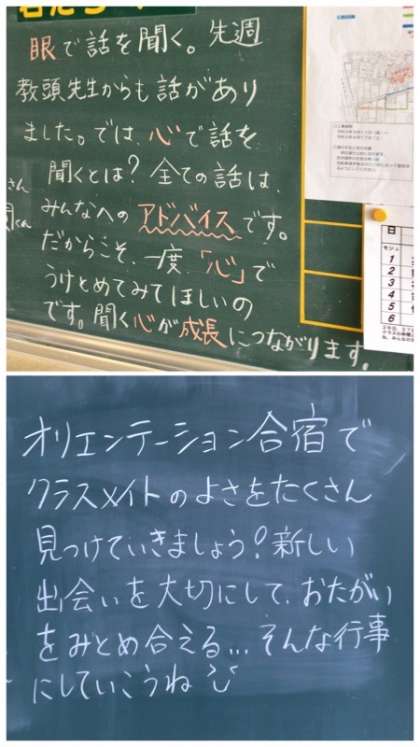 眼で話を聞く。先週
教頭先生からも話があり
ました。では、心で話を
聞くとは？全ての話は、
みんなへのアドバイスです。
だからこそ、一度、「心」で
うけとめてみてほしいの
です。聞く心が成長につながります。
さん
くん
日
1
2
3
4
5
6
オリエンテーション合宿で
クラスメイトのよさをたくさん
見つけていきましょう？新しい
出会いを大切にして、おたがい
をみとめ合える…そんな行事
にしていこうね